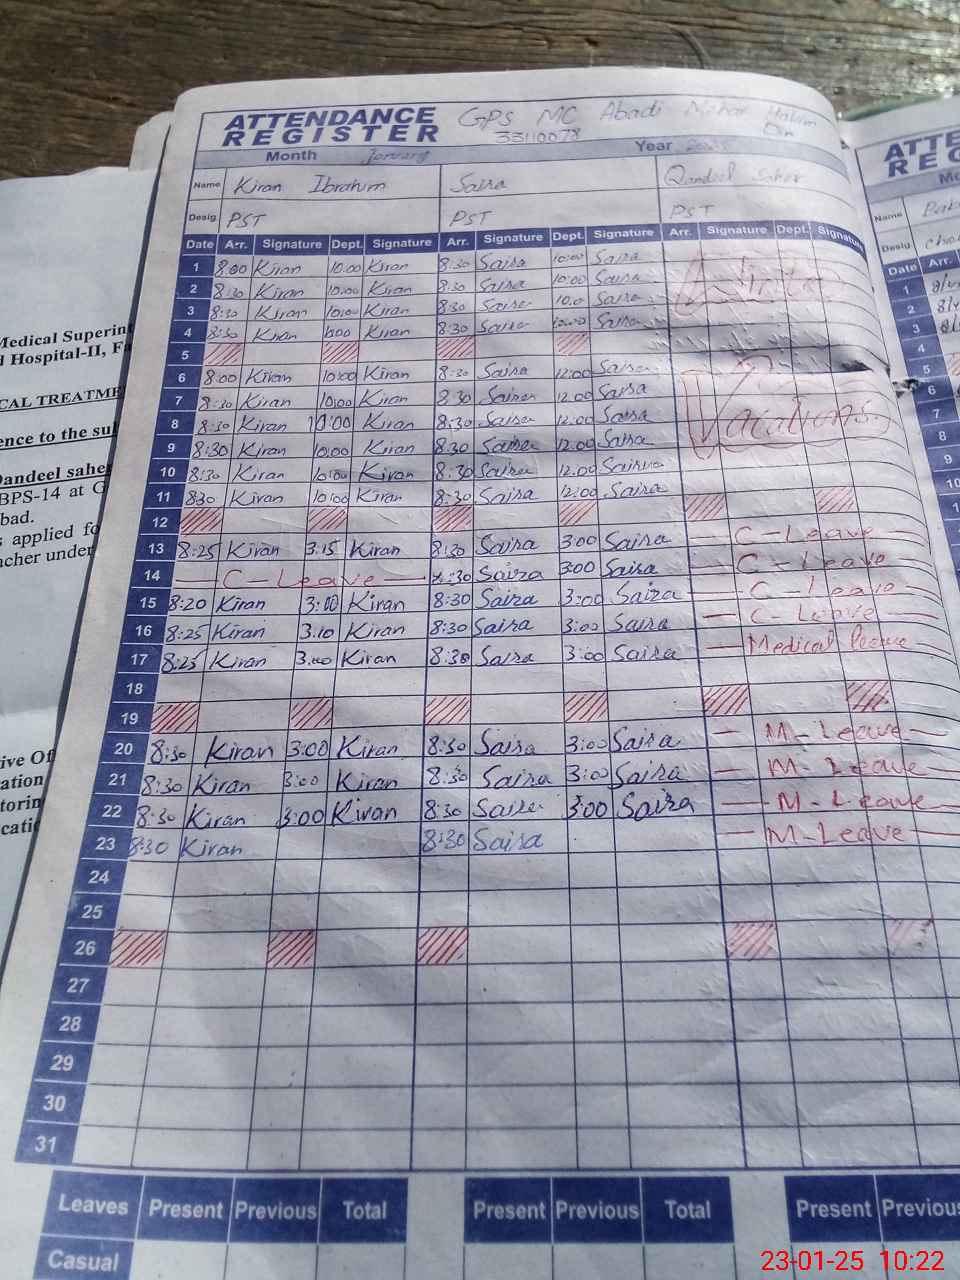 ATTENDANCE REGISTER
GPS MC Abadi Mehar Hakim Din
33110078
Month January Year
Name Kiran Ibrahim Saira Qandeel Saher
Desig. PST PST PST
Date Arr. Signature Dept. Signature Arr. Signature Dept. Signature Arr. Signature Dept. Signature
1 8:00 Kiran 10:00 Kiran 8:30 Saira 10:00 Saira
2 8:30 Kiran 10:00 Kiran 8:30 Saira 10:00 Saira
3 8:30 Kiran 10:00 Kiran 8:30 Saira 10:0 Saira
4 8:30 Kiran Kiran 8:30 Saira 10:00 Saira
Winter
5
6 8:00 Kiran 10:00 Kiran 8:30 Saira 12:00 Saira
7 8:30 Kiran 10:00 Kiran 8:30 Saira 12:00 Saira
8 8:30 Kiran 10:00 Kiran 8:30 Saira 12:00 Saira
Vacations
9 8:30 Kiran 10:00 Kiran 8:30 Saira 12:00 Saira
10 8:30 Kiran 10:00 Kiran 8:30 Saira 12:00 Saira
11 830 Kiran 10:00 Kiran 8:30 Saira 12:00 Saira
12
13 8:25 Kiran 3:15 Kiran 8:30 Saira 3:00 Saira — C - Leave
14 — C - Leave — 8:30 Saira 3:00 Saira — C - Leave
15 8:20 Kiran 3:00 Kiran 8:30 Saira 3:00 Saira — C - Leave
16 8:25 Kiran 3:10 Kiran 8:30 Saira 3:00 Saira — C - Leave
17 8:25 Kiran 3:00 Kiran 8:30 Saira 3:00 Saira — Medical leave
18
19
20 8:30 Kiran 3:00 Kiran 8:30 Saira 3:00 Saira — M - Leave —
21 8:30 Kiran 3:00 Kiran 8:30 Saira 3:00 Saira — M - Leave —
22 8:30 Kiran 3:00 Kiran 8:30 Saira 3:00 Saira — M - Leave
23 8:30 Kiran 8:30 Saira — M - Leave —
24
25
26
27
28
29
30
31
Leaves Present Previous Total Present Previous Total Present Previous
Casual
Medical Superint
d Hospital-II, Fa
CAL TREATME
ence to the su
andeel sahe
BPS-14 at G
bad.
s applied fo
cher under
ive Of
ation
torin
cati
ATT
REG
Mo
Name
Desig.
Date Arr.
1
2
3
4
5
6
7
8
9
10
23-01-25 10:22